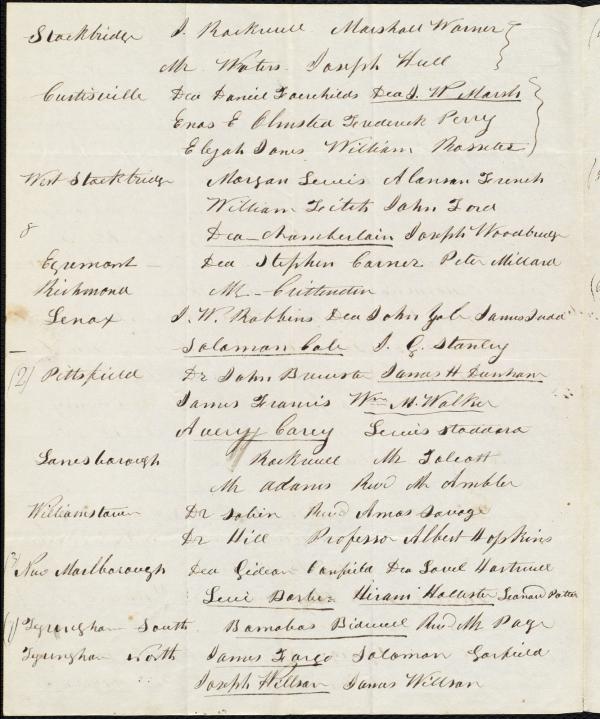 Stockbridge J. Rockwell Marshall Warner
Mr. Waters. Joseph Hull
Curtisville Dea Daniel Fairchilds Dea J. W. Marsh
Enos E Olmsted Frederick Perry
Elijah Jones William Rosseter
West Stockbridge Morgan Lewis Alanson French
William Fitch John Ford
8 Dea Chamberlain Joseph Woodbridge
Egremont Dea Stephen Carner Peter Millard
Richmond Mr Crittenden
Lenox J. W. Robbins Dea John James Judd
Soloman Cole J. G. Stanley
(2) Pittsfield Dr John Brewster James H Dunham
James Francis Wm M. Walker
Avery Carey Lewis Stoddard
Lanesborough Rockwell Mr Talcott
Mr Adams Revd Mr Ambler
Williamstown Dr Sabin Revd Amos Savage
Dr Hill Professor Albert Hopkins
New Marlborough Dea Gideon Canfield Dea Hartwell
Levi Hiram Hollister Leonard Potter
Tyringham South Barnabas Bidwell Revd Mr Page
Tyringham North James Fargo Soloman Garfield
Joseph Willson James Willson